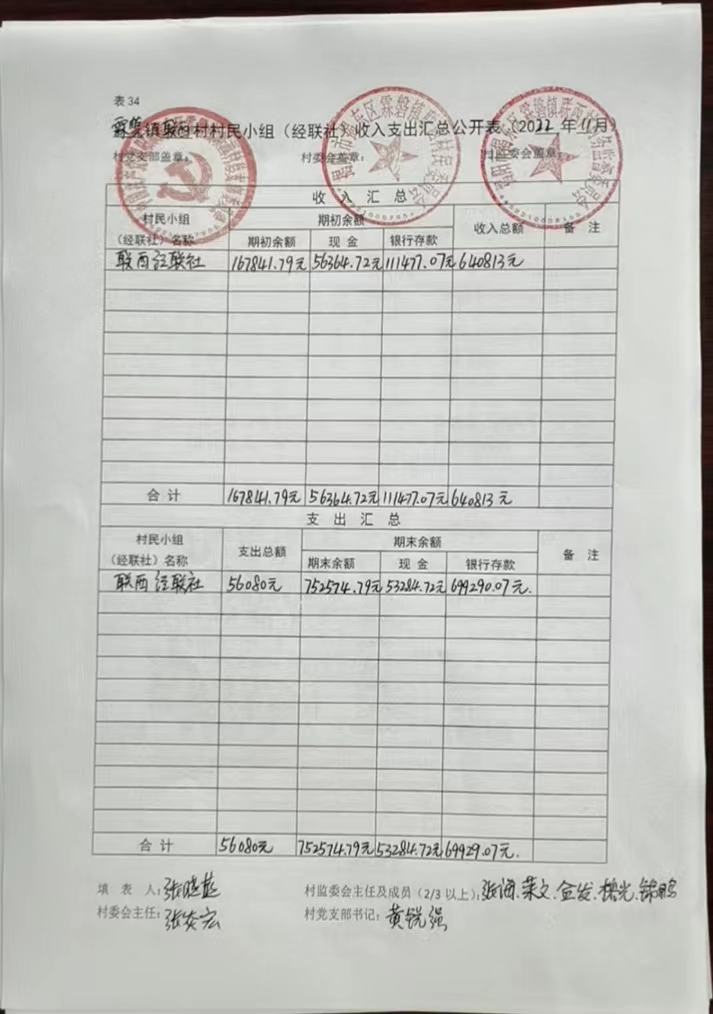 表34
霖磐镇联西村村民小组（经联社）收入支出汇总公开表（2022年11月）
村党支部盖章： 村委会盖章： 村监委会盖章：
收入汇总
村民小组（经联社）名称 期初余额 期初余额 现金 银行存款 收入总额 备注
联西经联社 167841.79元 56364.72元 111477.07元 640813元
合计 167841.79元 56364.72元 111477.07元 640813元
支出汇总
村民小组（经联社）名称 支出总额 期末余额 期末余额 现金 银行存款 备注
联西经联社 56080元 752574.79元 53284.72元 699290.07元.
合计 56080元 752574.79元 53284.72元 69929.07元.
填表人： 村监委会主任及成员（2/3以上）：
村委会主任： 村党支部书记：黄锐强